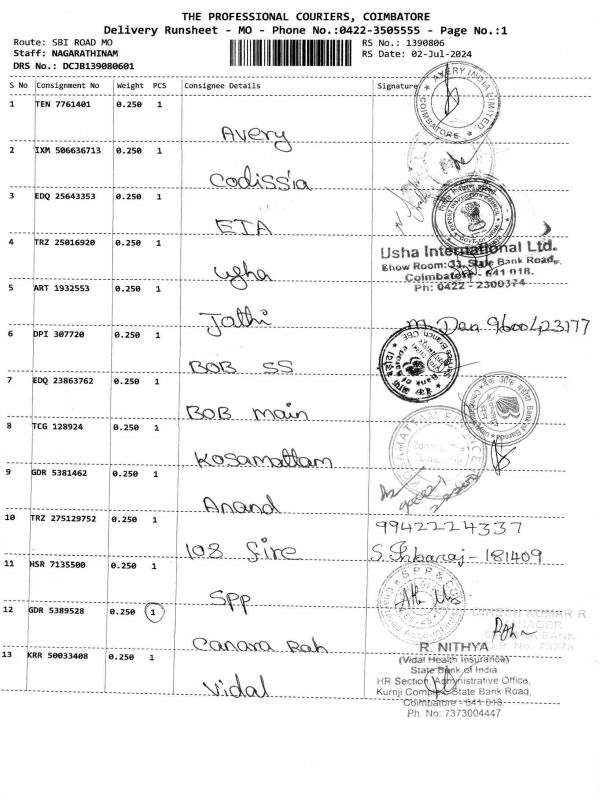 THE PROFESSIONAL COURIERS, COIMBATORE
Delivery Runsheet - MO - Phone No.:0422-3505555 - Page No.:1
Route: SBI ROAD MO
RS No.: 1390806
Staff: NAGARATHINAM
RS Date: 02-Jul-2024
DRS No.: DCJB139080601
S No Consignment No Weight PCS Consignee Details Signature
1 TEN 7761401 0.250 1
AVERY INDIA LIMITED
COIMBATORE
Avery
2 IXM 506636713 0.250 1
Codissia
3 EDQ 25643353 0.250 1
ETA
4 TRZ 25016920 0.250 1
Usha International Ltd.
Show Room: 33, State Bank Road,
Coimbatore - 641 018.
Ph: 0422 - 2300374
Usha
5 ART 1932553 0.250 1
Jothi
9600423177
6 DPI 307720 0.250 1
BOB SS
7 EDQ 23863762 0.250 1
Bank of Baroda
BOB main
8 TCG 128924 0.250 1
Kosamattam
9 GDR 5381462 0.250 1
Anand
10 TRZ 275129752 0.250 1
9942224337
108 fire
181409
11 HSR 7135500 0.250 1
SPP &
SPP
12 GDR 5389528 0.250 1
KUMAR R
MANAGER
BANK
Canara
13 KRR 50033408 0.250 1
R. NITHYA
(Vidal Health Insurance)
State Bank of India
HR Section Administrative Office,
Kurnji Complex State Bank Road,
Coimbatore - 641 018.
Ph. No: 7373004447
Vidal